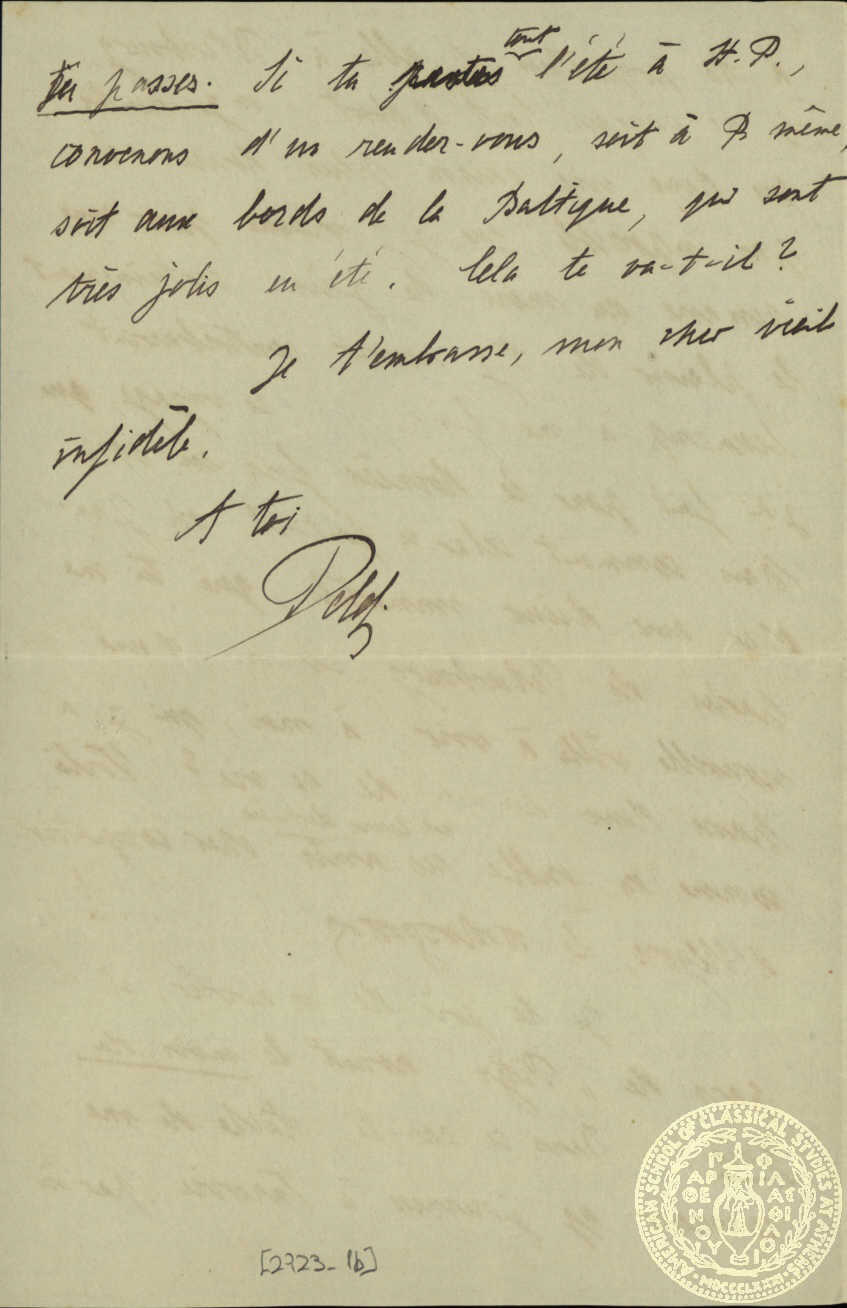 tu passes. Si tu restes tout l'été à H.P.,
convenons d'un rendez-vous, soit à P même,
soit aux bords de la Baltique, qui sont
très jolis en été. Cela te va-t-il?
Je t'embrasse, mon cher vieil
infidèle.
A toi
[2723-1b]
AMERICAN SCHOOL OF CLASSICAL STUDIES AT ATHENS
ΠΑΡΘΕΝΟΥ ΦΙΛΑΣ ΦΙΛΙΟ
MDCCCLXXXI